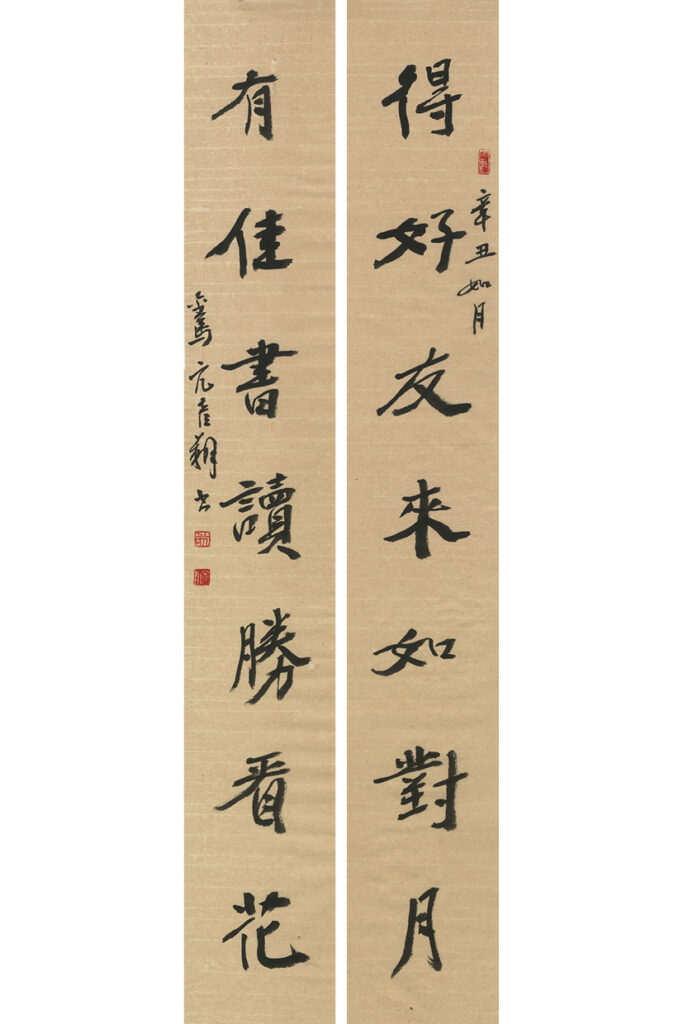 得好友來如對月
辛丑如月
有佳書讀勝看花
書